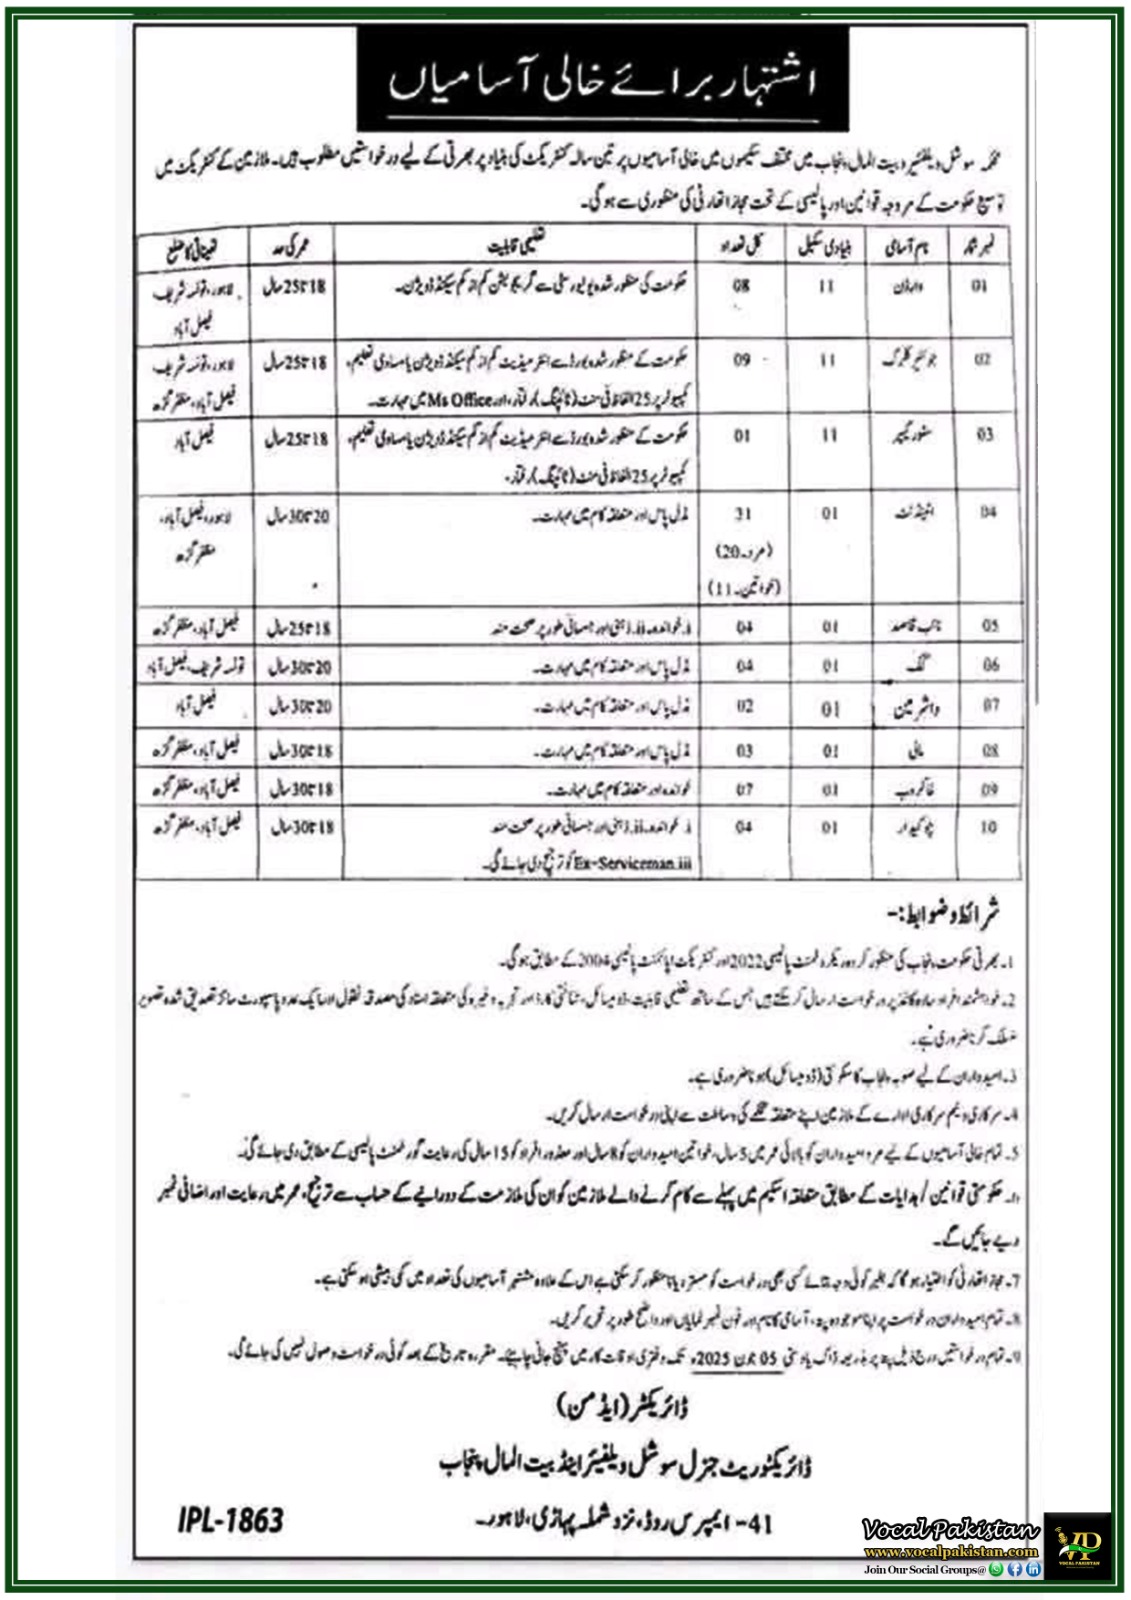 اشتہار برائے خالی آسامیاں
محکمہ سوشل ویلفیئر و بیت المال پنجاب میں مختلف سکیموں میں خالی آسامیوں پر تین سالہ کنٹریکٹ کی بنیاد پر بھرتی کے لیے درخواستیں مطلوب ہیں۔ ملازمین کے کنٹریکٹ میں
توسیع حکومت کے مروجہ قوانین اور پالیسی کے تحت مجاز اتھارٹی کی منظوری سے ہوگی۔
نمبر شمار نام آسامی بنیادی سکیل کل تعداد تعلیمی قابلیت عمر کی حد تعیناتی کا ضلع
01 وارڈن 11 08 حکومت کی منظور شدہ یونیورسٹی سے گریجویشن کم از کم سیکنڈ ڈویژن۔ 18 تا 25 سال لاہور، تونسہ شریف
فیصل آباد
02 جونیئر کلرک 11 09 حکومت کے منظور شدہ بورڈ سے انٹرمیڈیٹ کم از کم سیکنڈ ڈویژن یا مساوی تعلیم، 18 تا 25 سال لاہور، تونسہ شریف
کمپیوٹر پر 25 الفاظ فی منٹ (ٹائپنگ) رفتار، اور Ms Office میں مہارت۔ فیصل آباد، مظفر گڑھ
03 سٹور کیپر 11 01 حکومت کے منظور شدہ بورڈ سے انٹرمیڈیٹ کم از کم سیکنڈ ڈویژن یا مساوی تعلیم، 18 تا 25 سال فیصل آباد
کمپیوٹر پر 25 الفاظ فی منٹ (ٹائپنگ) رفتار۔
04 اٹینڈنٹ 01 31 مڈل پاس اور متعلقہ کام میں مہارت۔ 20 تا 30 سال لاہور، فیصل آباد،
(مرد۔20) مظفر گڑھ
(خواتین۔11)
05 نائب قاصد 01 04 i۔ خواندہ۔ ii۔ ذہنی اور جسمانی طور پر صحت مند 18 تا 25 سال فیصل آباد، مظفر گڑھ
06 کُک 01 04 مڈل پاس اور متعلقہ کام میں مہارت۔ 20 تا 30 سال تونسہ شریف، فیصل آباد
07 واشر مین 01 02 مڈل پاس اور متعلقہ کام میں مہارت۔ 20 تا 30 سال فیصل آباد
08 مالی 01 03 مڈل پاس اور متعلقہ کام میں مہارت۔ 18 تا 30 سال فیصل آباد، مظفر گڑھ
09 خاکروب 01 07 خواندہ اور متعلقہ کام میں مہارت۔ 18 تا 30 سال فیصل آباد، مظفر گڑھ
10 چوکیدار 01 04 i۔ خواندہ۔ ii۔ ذہنی اور جسمانی طور پر صحت مند 18 تا 30 سال فیصل آباد، مظفر گڑھ
iii۔ Ex-Serviceman کو ترجیح دی جائے گی۔
شرائط و ضوابط:-
1۔ بھرتی حکومت پنجاب کی منظور کردہ ریکروٹمنٹ پالیسی 2022 اور کنٹریکٹ اپائنمنٹ پالیسی 2004 کے مطابق ہوگی۔
2۔ خواہشمند افراد سادہ کاغذ پر درخواست ارسال کر سکتے ہیں جس کے ساتھ تعلیمی قابلیت، ڈومیسائل، شناختی کارڈ اور تجربہ وغیرہ کی متعلقہ اسناد کی مصدقہ نقول اور ایک عدد پاسپورٹ سائز تصدیق شدہ تصویر
منسلک کرنا ضروری ہے۔
3۔ امیدواران کے لیے صوبہ پنجاب کا سکونتی (ڈومیسائل) ہونا ضروری ہے۔
4۔ سرکاری و نیم سرکاری ادارے کے ملازمین اپنے متعلقہ محکمے کی وساطت سے اپنی درخواست ارسال کریں۔
5۔ تمام خالی آسامیوں کے لیے مرد امیدواران کو بالائی عمر میں 5 سال، خواتین امیدواران کو 8 سال اور معذور افراد کو 15 سال کی رعایت گورنمنٹ پالیسی کے مطابق دی جائے گی۔
حکومتی قوانین / ہدایات کے مطابق متعلقہ اسکیم میں پہلے سے کام کرنے والے ملازمین کو ان کی ملازمت کے دورانیے کے حساب سے ترجیح، عمر میں رعایت اور اضافی نمبر
دیے جائیں گے۔
7۔ مجاز اتھارٹی کو اختیار ہوگا کہ بغیر کوئی وجہ بتائے کسی بھی درخواست کو مسترد یا نامنظور کر سکتی ہے اس کے علاوہ مشتہر آسامیوں کی تعداد میں کمی بیشی ہو سکتی ہے۔
8۔ تمام امیدواران درخواست پر اپنا موجودہ پتہ، آسامی کا نام اور فون نمبر نمایاں اور واضح طور پر تحریر کریں۔
9۔ تمام درخواستیں درج ذیل پتہ پر بذریعہ ڈاک یا دستی 05 جون 2025ء تک دفتری اوقات کار میں پہنچ جانی چاہئیے۔ مقررہ تاریخ کے بعد کوئی درخواست وصول نہیں کی جائے گی۔
ڈائریکٹر (ایڈمن)
ڈائریکٹوریٹ جنرل سوشل ویلفیئر اینڈ بیت المال پنجاب
41- ایمپرس روڈ، نزد شملہ پہاڑی، لاہور۔
IPL-1863
Vocal Pakistan
www.vocalpakistan.com
Join Our Social Groups@
VP
VOCAL PAKISTAN